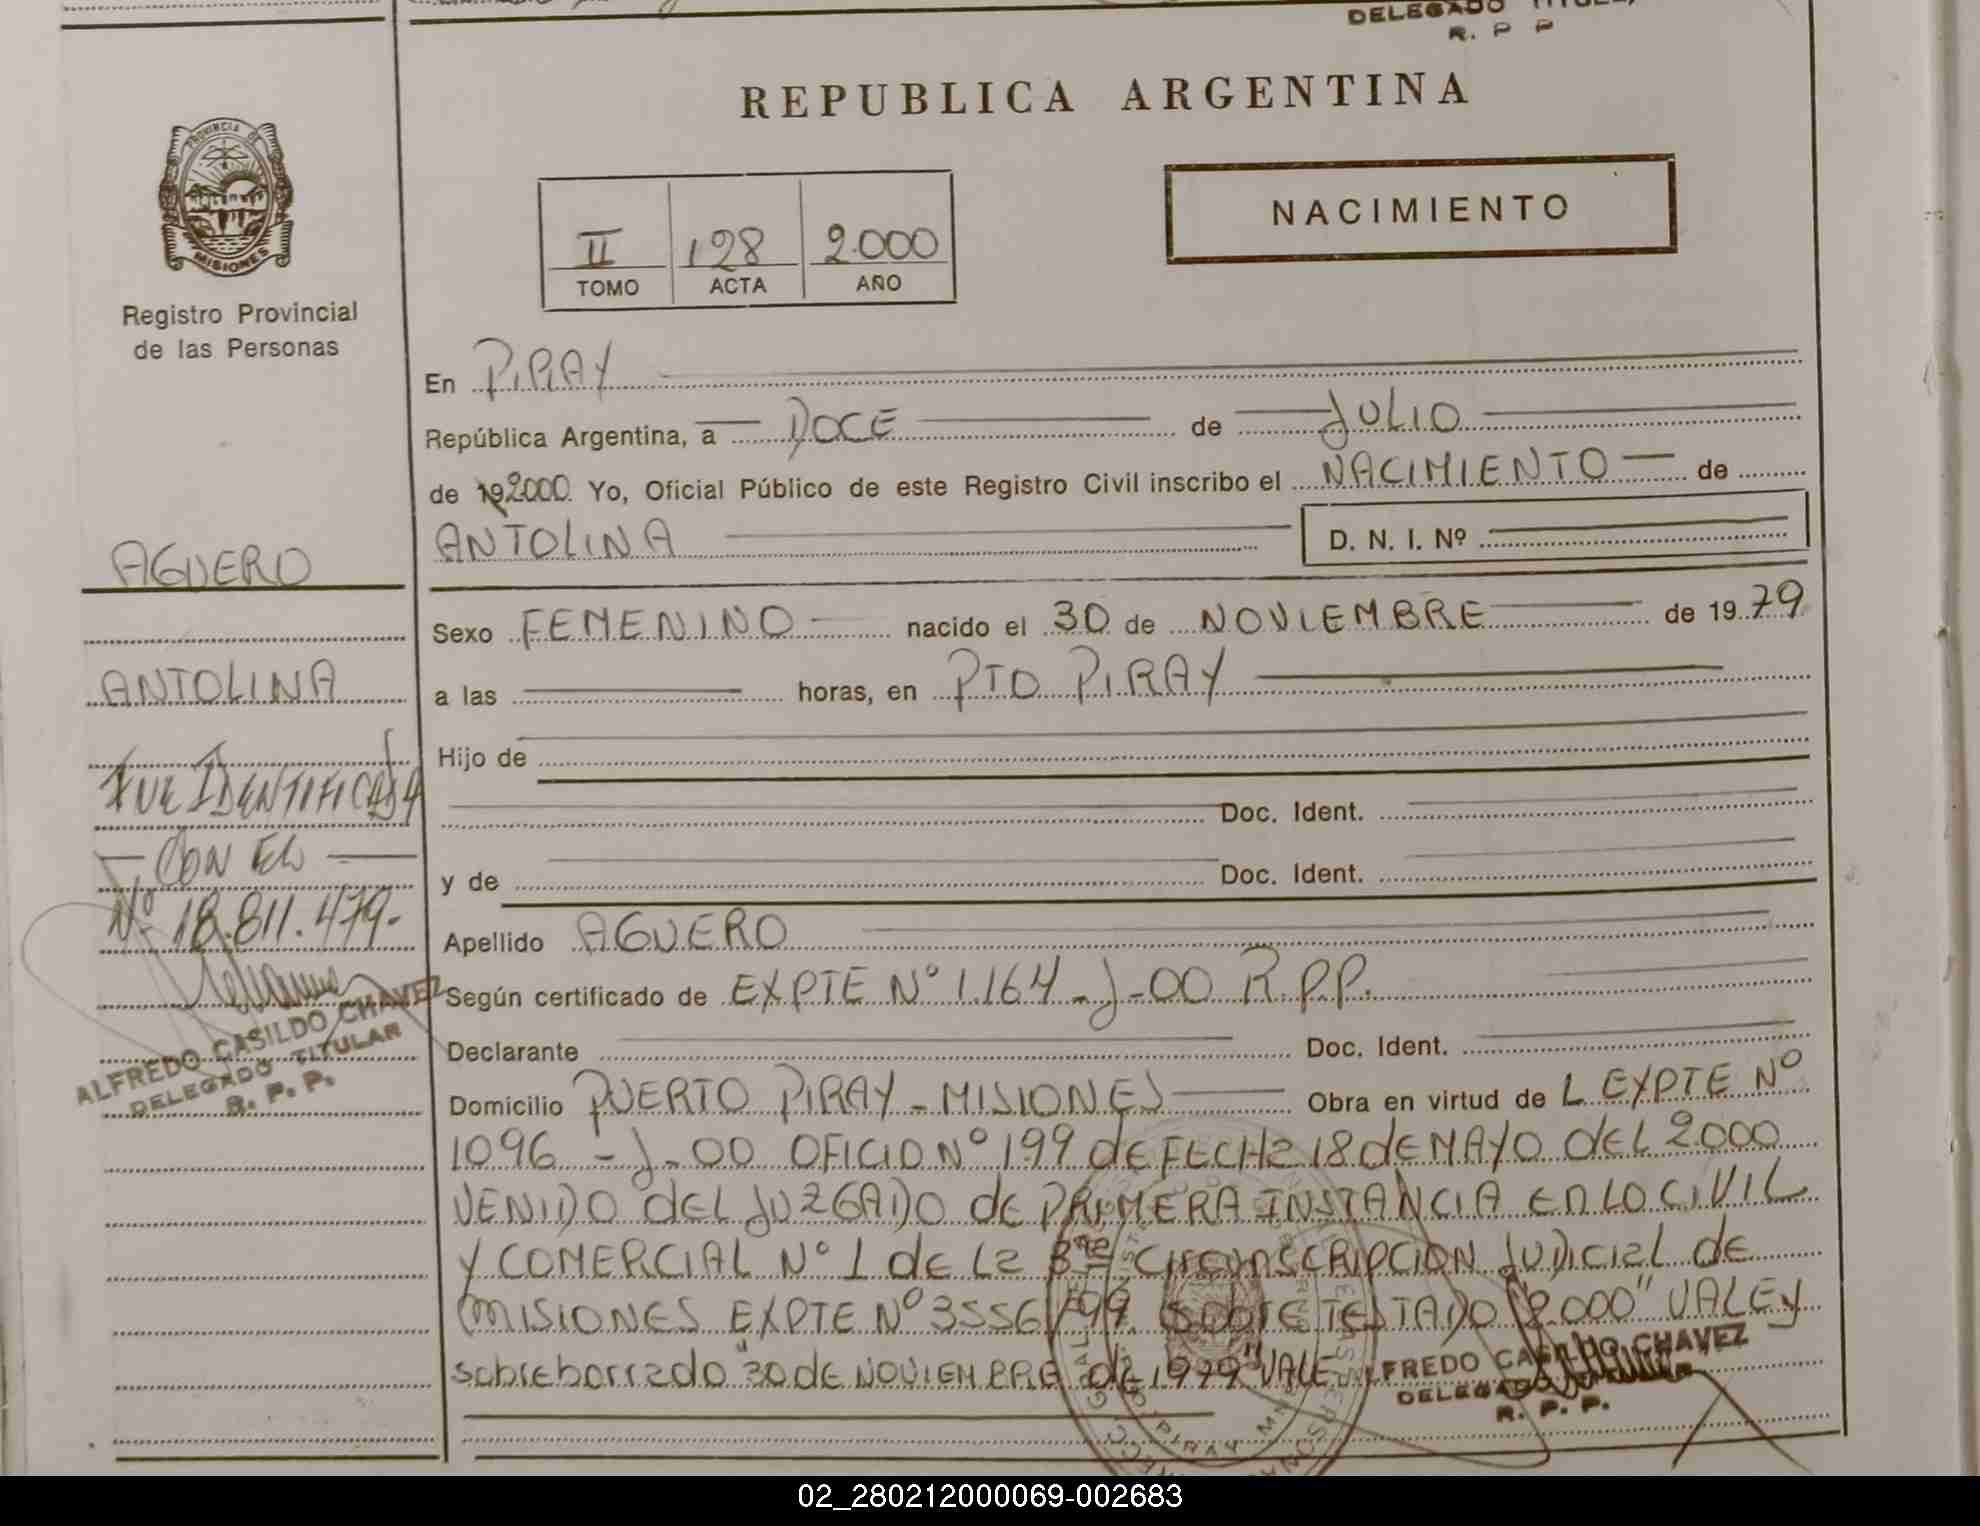 DELEGADO TITUL
R. P P
REPUBLICA ARGENTINA
PROVINCIA DE
MISIONES
Registro Provincial
de las Personas
II 128 2.000
TOMO ACTA AÑO
NACIMIENTO
En PIRAY
República Argentina, a DOCE de JULIO
de 192000 Yo, Oficial Público de este Registro Civil inscribo el NACIMIENTO de
ANTOLINA D. N. I. Nº
AGUERO
Sexo FEMENINO nacido el 30 de NOVIEMBRE de 1979
ANTOLINA
a las horas, en PTO PIRAY
Hijo de
FUE IDENTIFICADA
CON EL
Nº 18.811.479-
Doc. Ident.
y de Doc. Ident.
Apellido AGUERO
Según certificado de EXPTE Nº 1.164-J-00 R.P.P.
ALFREDO CASILDO CHAVEZ
DELEGADO TITULAR
R. P. P.
Declarante Doc. Ident.
Domicilio PUERTO PIRAY - MISIONES Obra en virtud de L EXPTE Nº
1096 - J-00 OFICIO Nº 199 de FECHa 18 de MAYO del 2000
VENIDO del JUZGADO de PRIMERA INSTANCIA EN LO CIVIL
Y COMERCIAL Nº 1 de La 3ra CircunscRIPCION JUDICIal de
MISIONES EXPTE Nº 3556/99. SobrE TESTADO "2.000" VALE y
sobreborrado "30 de NOVIEMBRE de 1979" VALE
ALFREDO CASILDO CHAVEZ
DELEGADO TITULAR
R. P. P.
02_280212000069-002683